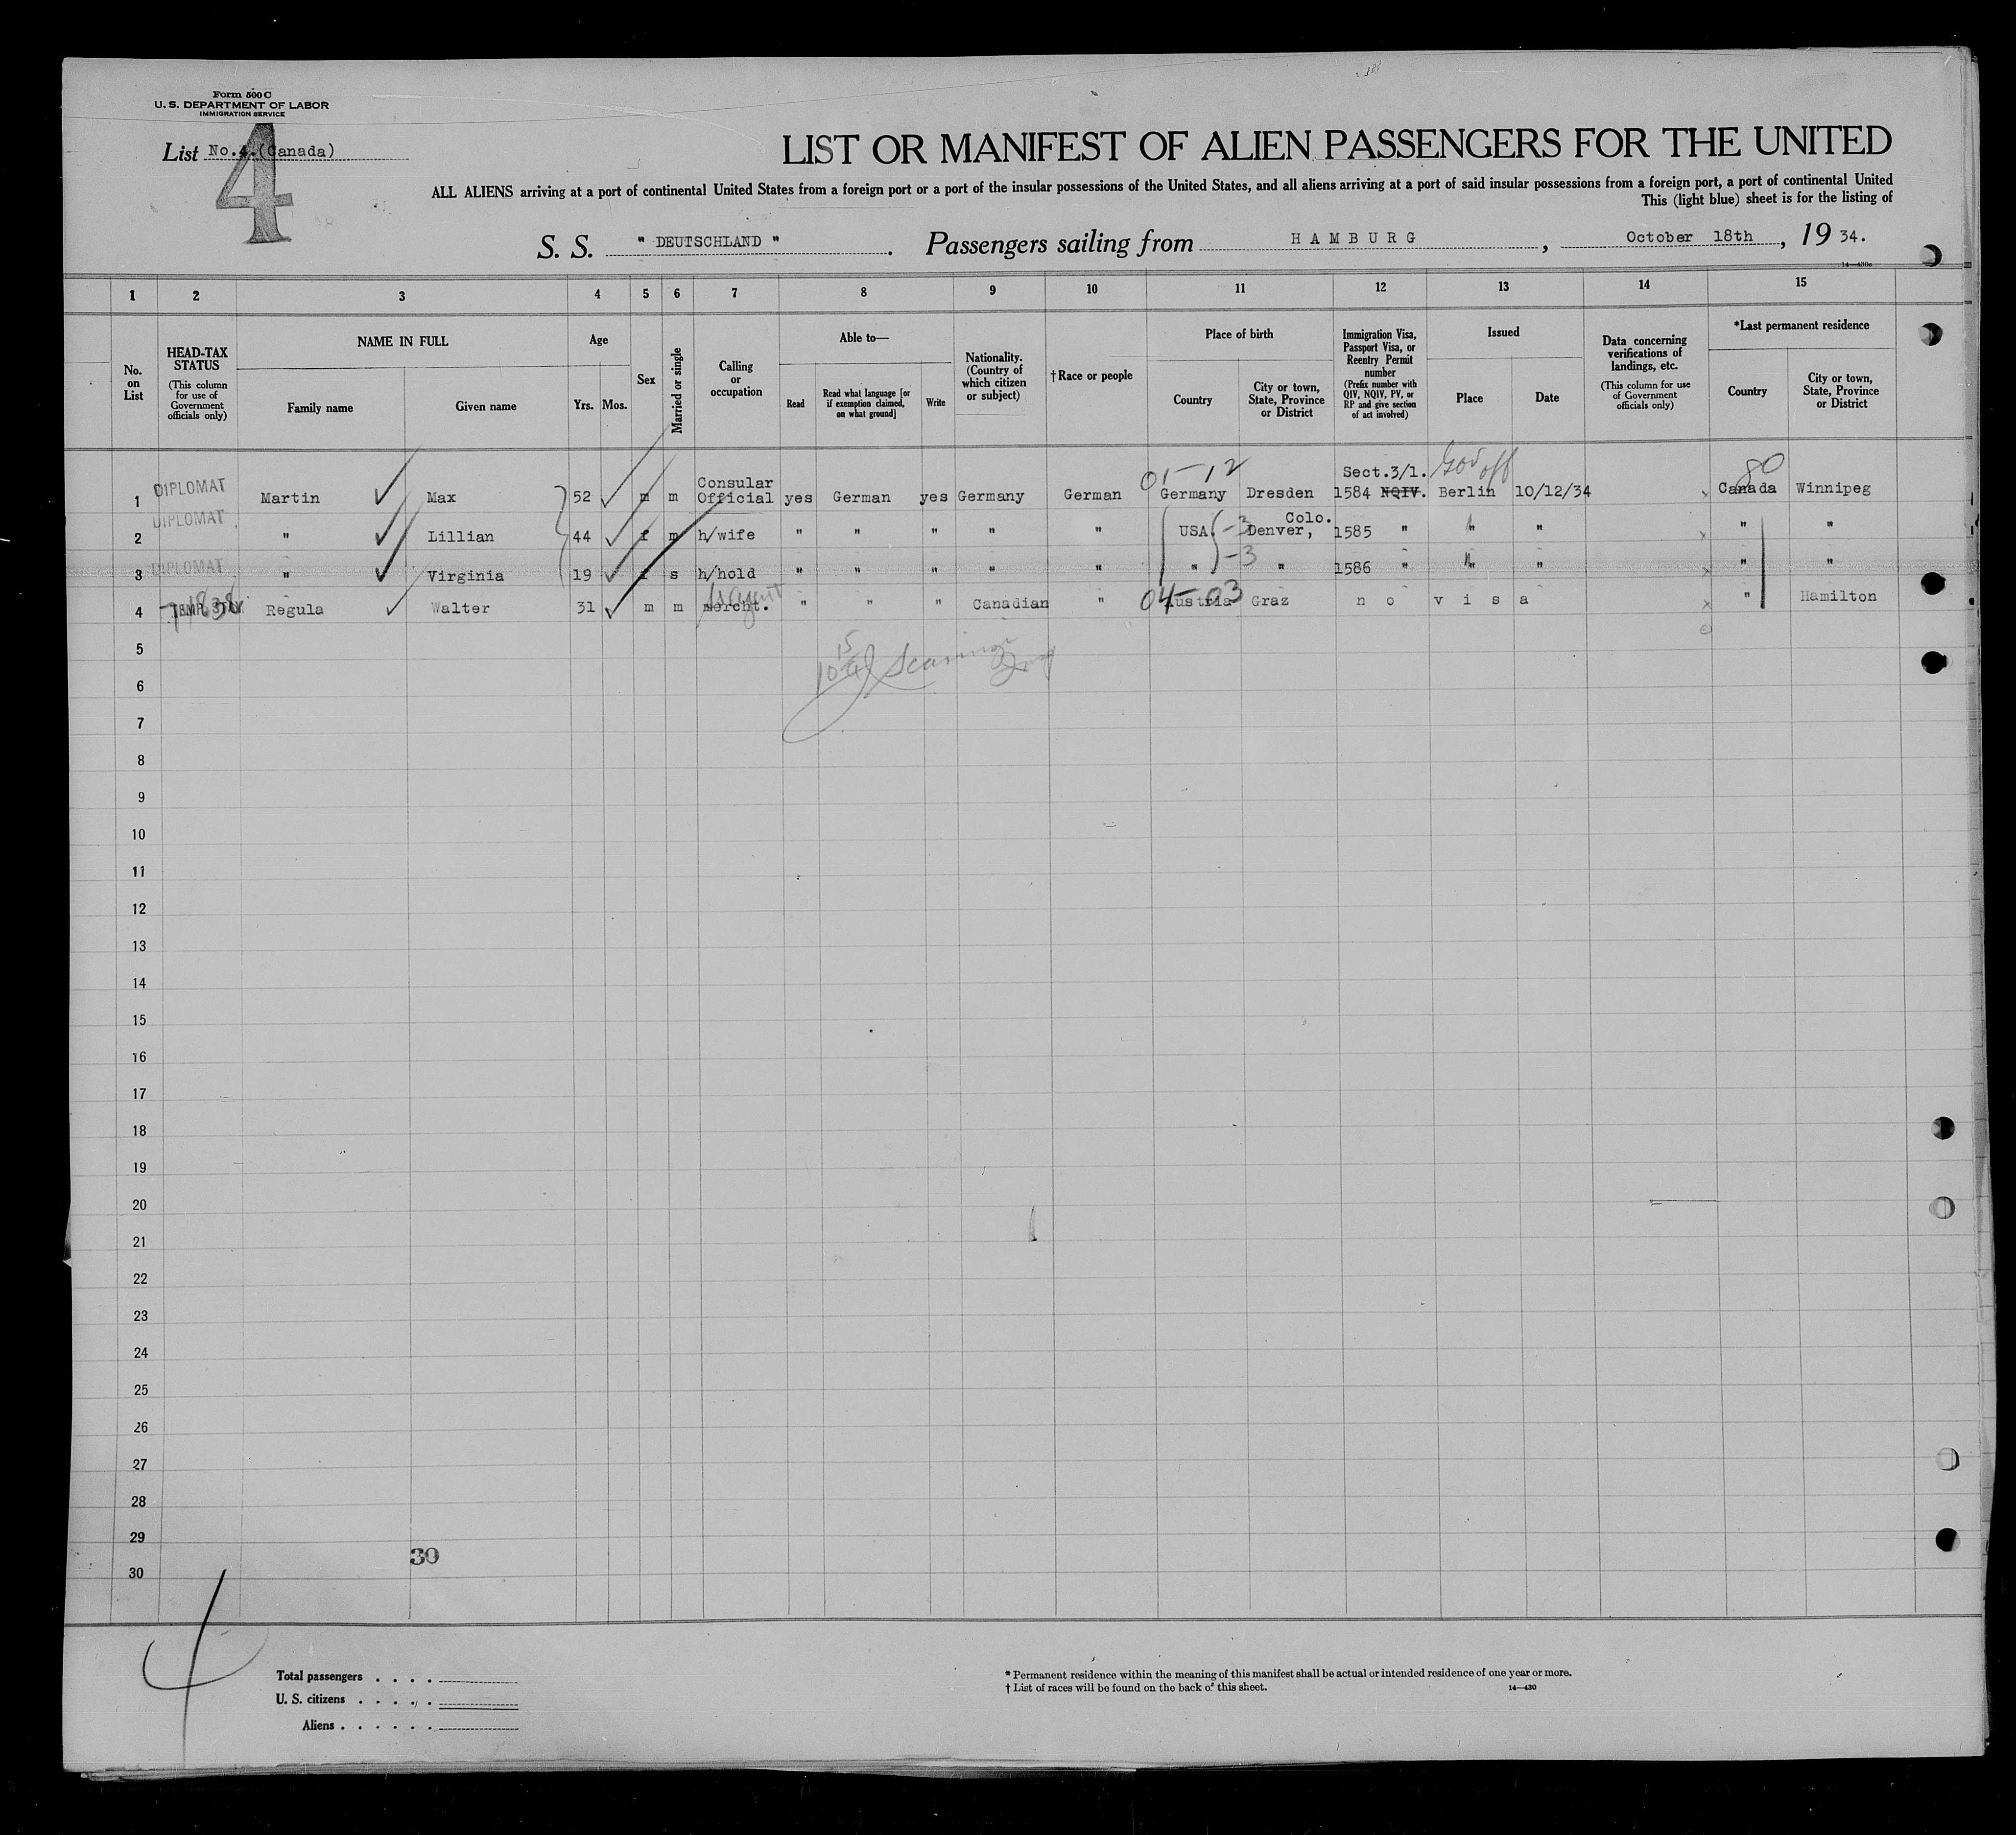 Form 500 C
U. S. DEPARTMENT OF LABOR
IMMIGRATION SERVICE
List No.4.(Canada)
4
LIST OR MANIFEST OF ALIEN PASSENGERS FOR THE UNITED
ALL ALIENS arriving at a port of continental United States from a foreign port or a port of the insular possessions of the United States, and all aliens arriving at a port of said insular possessions from a foreign port, a port of continental United
This (light blue) sheet is for the listing of
S. S. " DEUTSCHLAND " . Passengers sailing from H A M B U R G , October 18th , 19 34.
14—430c
1 2 3 4 5 6 7 8 9 10 11 12 13 14 15
No. on List
HEAD-TAX STATUS (This column for use of Government officials only)
NAME IN FULL
Family name Given name
Age
Yrs. Mos.
Sex
Married or single
Calling or occupation
Able to—
Read
Read what language [or if exemption claimed, on what ground]
Write
Nationality. (Country of which citizen or subject)
†Race or people
Place of birth
Country
City or town, State, Province or District
Immigration Visa, Passport Visa, or Reentry Permit number (Prefix number with QIV, NQIV, PV, or RP and give section of act involved)
Issued
Place Date
Data concerning verifications of landings, etc. (This column for use of Government officials only)
*Last permanent residence
Country
City or town, State, Province or District
01-12 Sect.3/1. Gov off 80
1 DIPLOMAT Martin Max 52 m m Consular Official yes German yes Germany German Germany Dresden 1584 NQIV. Berlin 10/12/34 Canada Winnipeg
2 DIPLOMAT " Lillian 44 f m h/wife " " " " " USA -3 Denver, Colo. 1585 " " " " "
3 DIPLOMAT " Virginia 19 f s h/hold " " " " " " -3 " 1586 " " " " "
4 Regula Walter 31 m m Mercht. " " " Canadian " 04-03 Austria Graz n o v i s a " Hamilton
5
6
7
8
9
10
11
12
13
14
15
16
17
18
19
20
21
22
23
24
25
26
27
28
29
30
30
Total passengers . . . .
U. S. citizens . . . . .
Aliens . . . . . .
* Permanent residence within the meaning of this manifest shall be actual or intended residence of one year or more.
† List of races will be found on the back of this sheet.
14—430